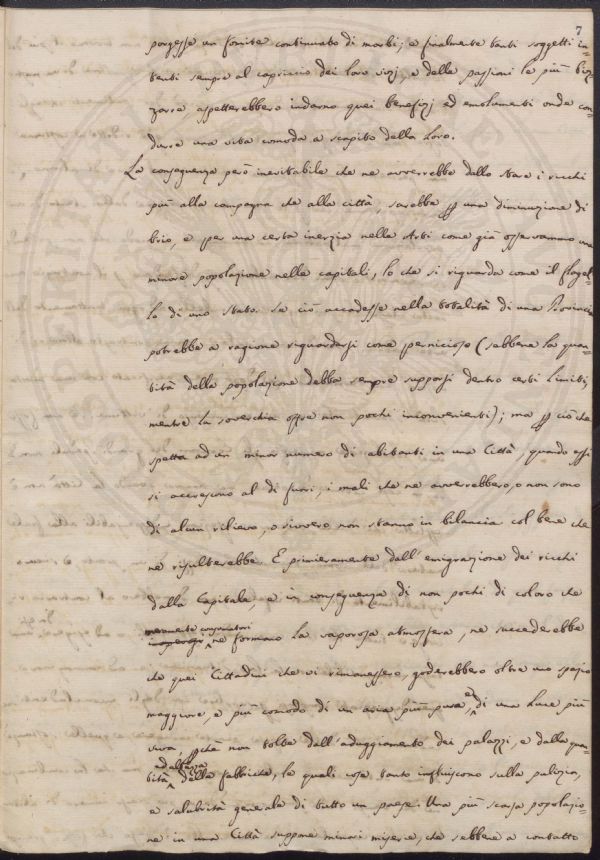 7
porgesse un fomite continuato di morbi; e finalmente tanti soggetti in-
tenti sempre al capriccio dei loro vizj, e delle passioni le più biz-
zarre, aspetterebbero indarno quei benefizj ed emolumenti onde con-
durre una vita comoda a scapito della Loro.
La conseguenza però inevitabile che ne avverrebbe dallo stare i ricchi
più alla campagna che alla città, sarebbe per una diminuzione di
brio, e per una certa inerzia nelle Arti come già osservammo una
minore popolazione nelle capitali, lo che si riguarda come il flagel-
lo di uno stato. Se ciò accadesse nella totalità di una Provincia
potrebbe a ragione riguardarsi come pernicioso (sebbene la quan-
tità della popolazione debba sempre supporsi dentro certi limiti,
mentre la soverchia offre non pochi inconvenienti); ma per ciò che
spetta ad un minor numero di abitanti in una Città, quando essi
si accrescono al di fuori, i mali che ne avverrebbero, o non sono
di alcun rilievo, o sivvero non stanno in bilancia col bene che
ne risulterebbe. E primieramente dall'emigrazione dei ricchi
dalla Capitale, e in conseguenza di non pochi di coloro che
meramente consumatori
ne formano la vaporosa atmosfera, ne succederebbe
che quei Cittadini che vi rimanessero, goderebbero oltre uno spazio
maggiore, e più comodo di un aria più pura, e di una luce più
viva, perchè non tolta dall'aduggiamento dei palazzi, e dalla quan-
ed altezza
tità delle fabbriche, le quali cose tanto influiscono sulla pulizia,
e salubrità generale di tutto un paese. Una più scarsa popolazio-
ne in una Città suppone minori miserie, che sebbene a contatto